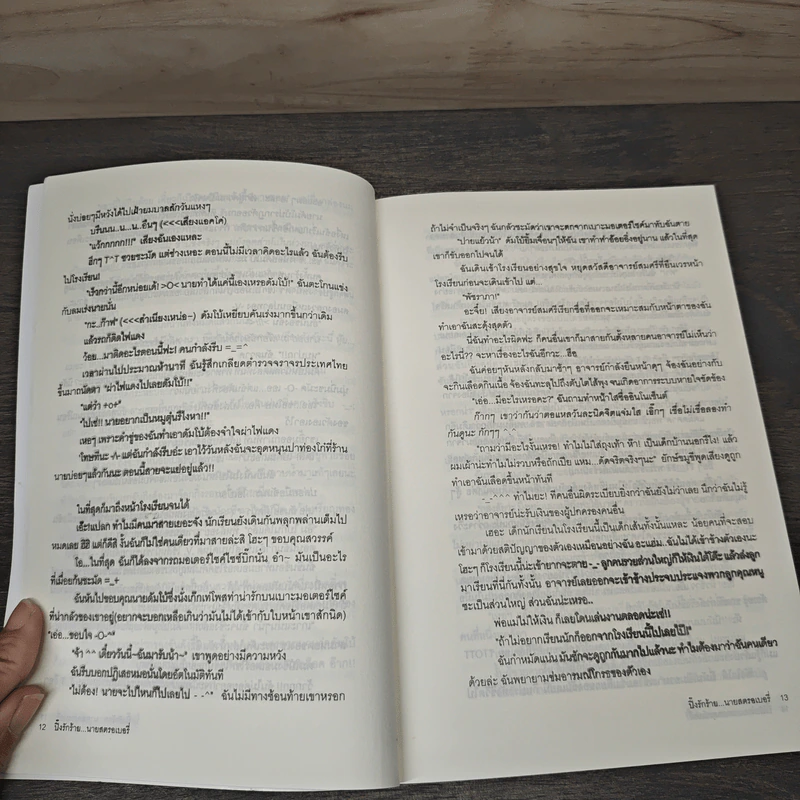 นั่งบ่อยๆมีหวังได้ไปเฝ้ายมบาลสักวันแหงๆ
บรืนนน..น...น..อืนๆ (<<<เสียงแอคโค่)
"แว้กกกกก!!!" เสียงฉันเองแหละ
ฮึกๆ T^T ซวยชะมัด แต่ช่างเหอะ ตอนนี้ไม่มีเวลาคิดอะไรแล้ว ฉันต้องรีบ
ไปโรงเรียน!
"เร็วกว่านี้อีกหน่อยเด้! >O< นายทำได้แค่นี้เองเหรอดัมโบ้!" ฉันตะโกนแข่ง
กับลมเร่งนายนั่น
"กะ..ก๊าฟ" (<<<สำเนียงเหน่อ~) ดัมโบ้เหยียบคันเร่งมากขึ้นกว่าเดิม
แล้วรถก็ติดไฟแดง
ว้อย...มาติดอะไรตอนนี้ฟะ! คนกำลังรีบ =_=^
เวลาผ่านไปประมาณห้านาที ฉันรู้สึกเกลียดตำรวจจราจรประเทศไทย
ขึ้นมาถนัดตา "ฝ่าไฟแดงไปเลยดัมโบ้!!"
"แต่ว่า +o+"
"ไปเซ่!! นายอยากเป็นหมูตุ๋นรึไงหา!!"
เหอๆ เพราะคำขู่ของฉันทำเอาดัมโบ้ต้องจำใจฝ่าไฟแดง
โทษทีนะ -/\- แต่ฉันกำลังรีบอ่ะ เอาไว้วันหลังฉันจะอุดหนุนปาท่องโก๋ที่ร้าน
นายบ่อยๆแล้วกันนะ ตอนนี้สายจะแย่อยู่แล้ว!!
ในที่สุดก็มาถึงหน้าโรงเรียนจนได้
เอ๊ะ!แปลก ทำไมมีคนมาสายเยอะจัง นักเรียนยังเดินกันพลุกพล่านเต็มไป
หมดเลย ฮิฮิ แต่ก็ดีสิ งั้นฉันก็ไม่ใช่คนเดียวที่มาสายล่ะสิ โฮะๆ ขอบคุณสวรรค์
โอ...ในที่สุด ฉันก็ได้ลงจากรถมอเตอร์ไซค์ไซซ์บิ๊กนั่น อ๋า~ มันเป็นอะไร
ที่เมื่อยก้นชะมัด =_+
ฉันหันไปขอบคุณนายดัมโบ้ซึ่งนั่งเก๊กเท่โพสท่าน่ารักบนเบาะมอเตอร์ไซค์
ที่น่ากลัวของเราอยู่(อยากจะบอกเหลือเกินว่ามันไม่ได้เข้ากับใบหน้าเขาสักนิด)
"เอ่อ...ขอบใจ -O-^"
"จ้า ^^ เดี๋ยววันนี้~ฉันมารับน้า~" เขาพูดอย่างมีความหวัง
ฉันรีบบอกปฏิเสธหมอนั่นโดยอัตโนมัติทันที
"ไม่ต้อง! นายจะไปไหนก็ไปเลยไป - -^" ฉันไม่มีทางซ้อนท้ายเขาหรอก
12 ปิ๊งรักร้าย...นายสตรอเบอรี่
ถ้าไม่จำเป็นจริงๆ ฉันกลัวชะมัดว่าเขาจะตกจากเบาะมอเตอร์ไซค์มาทับฉันตาย
"บ่ายแย้วน้า" ดัมโบ้ยิ้มเจื่อนๆให้ฉัน เขาทำท่าอ้อยอิ่งอยู่นาน แล้วในที่สุด
เขาก็ขับออกไปจนได้
ฉันเดินเข้าโรงเรียนอย่างสุขใจ หยุดสวัสดีอาจารย์สมศรีที่ยืนเวรหน้า
โรงเรียนก่อนจะเดินเข้าไป แต่...
"พัชราภา!"
อะจึ๋ย! เสียงอาจารย์สมศรีเรียกชื่อที่ออกจะเหมาะสมกับหน้าตาของฉัน
ทำเอาฉันสะดุ้งสุดตัว
นี่ฉันทำอะไรผิดฟะ ก็คนอื่นเขาก็มาสายกันตั้งหลายคนอาจารย์ไม่เห็นว่า
อะไรนี่?? จะหาเรื่องอะไรฉันอีกวะ...ฮือ
ฉันค่อยๆหันหลังกลับมาช้าๆ อาจารย์กำลังยืนหน้าดุๆ จ้องฉันอย่างกับ
จะกินเลือดกินเนื้อ จ้องฉันทะลุไปถึงตับไตไส้พุง จนเกิดอาการระบบหายใจขัดข้อง
"เอ่อ...มีอะไรเหรอคะ?" ฉันถามทำหน้าใสซื่ออินโนเซ้นต์
ก๊ากๆ เขาว่ากันว่าตอแหลวันละนิดจิตแจ่มใส เอิ๊กๆ เชื่อไม่เชื่อลองทำ
กันดูนะ กั๊กๆๆ ^_^
"ถามว่ามีอะไรงั้นเหรอ! ทำไมไม่ใส่ถุงเท้า หึ๊! เป็นเด็กบ้านนอกรึไง! แล้ว
ผมเผ้าน่ะทำไมไม่รวบหรือถักเปีย แหม...ดัดจริตจริงๆนะ" ยักษ์ขมูขีพูดเสียงดุถูก
ทำเอาฉันเลือดขึ้นหน้าทันที
-_-^^^ ทำไมยะ! ทีคนอื่นผิดระเบียบยิ่งกว่าฉันยังไม่ว่าเลย นึกว่าฉันไม่รู้
เหรอว่าอาจารย์น่ะรับเงินของผู้ปกครองคนอื่น
เฮอะ เด็กนักเรียนในโรงเรียนนี้เป็นเด็กเส้นทั้งนั้นแหละ น้อยคนที่จะสอบ
เข้ามาด้วยสติปัญญาของตัวเองเหมือนอย่างฉัน อะแฮ่ม...ฉันไม่ได้เข้าข้างตัวเองนะ
โฮะๆ ก็โรงเรียนนี้น่ะเข้ายากจะตาย -_- ลูกคนรวยส่วนใหญ่ก็ให้เงินใต้โต๊ะ แล้วส่งลูก
มาเรียนที่นี่กันทั้งนั้น อาจารย์เลยออกจะเข้าข้างประจบประแจงพวกลูกคุณหนู
ซะเป็นส่วนใหญ่ ส่วนฉันน่ะเหรอ..
พ่อแม่ไม่ให้เงิน ก็เลยโดนเล่นงานตลอดน่ะเซ่!!
"ถ้าไม่อยากเรียนนักก็ออกจากโรงเรียนนี้ไปเลยไป๊!"
ฉันกำหมัดแน่น มันชักจะดูถูกกันมากไปแล้วนะ ทำไมต้องมาว่าฉันคนเดียว
ด้วยล่ะ ฉันพยายามข่มอารมณ์โกรธของตัวเอง
ปิ๊งรักร้าย...นายสตรอเบอรี่ 13